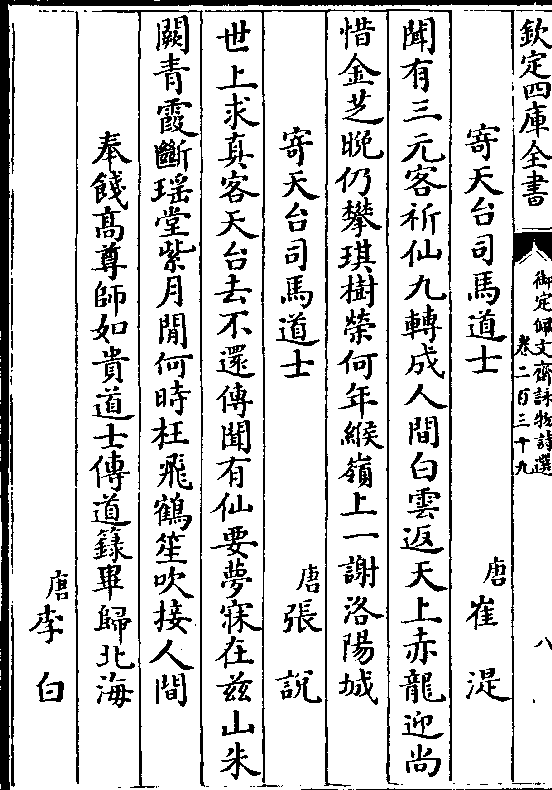 欽定四庫全書
御定佩文齋詠物詩選
卷二百三十九
八
寄天台司馬道士
唐崔湜
聞有三元客祈仙九轉成人間白雲返天上赤龍迎尚
惜金芝晚仍攀琪樹榮何年緱嶺上一謝洛陽城
寄天台司馬道士
唐張說
世上求真客天台去不還傳聞有仙要夢寐在兹山朱
闕青霞斷瑤堂紫月閒何時枉飛鶴笙吹接人間
奉餞髙尊師如貴道士傳道籙畢歸北海
唐李白